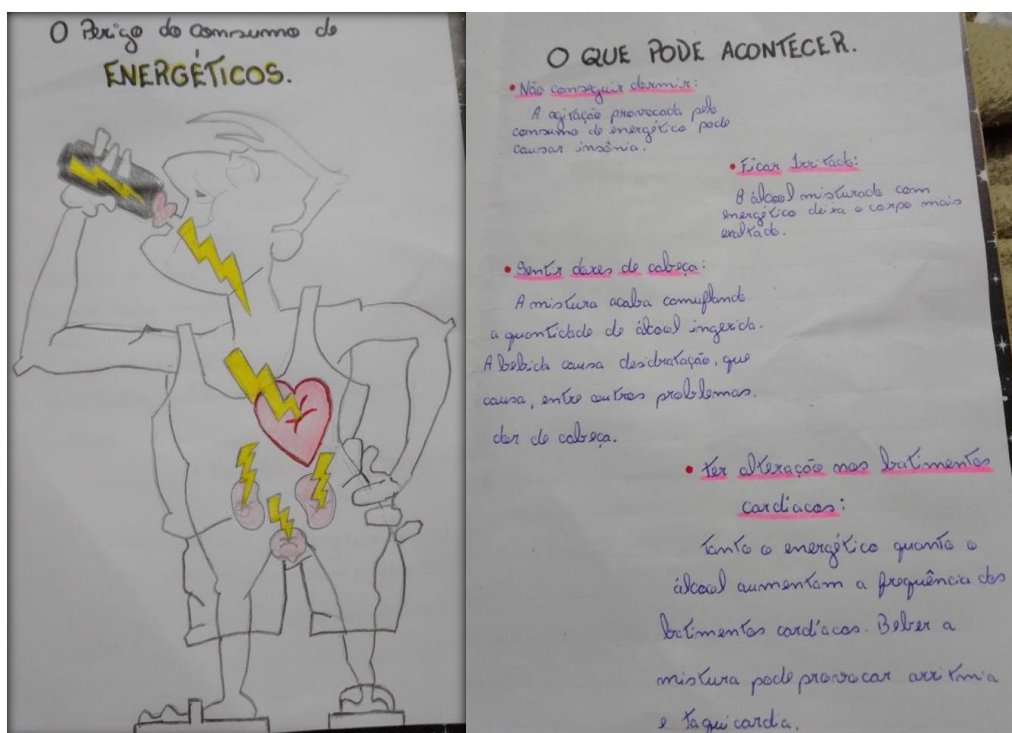 O Perigo do consumo de
ENERGÉTICOS.
O QUE PODE ACONTECER.
• Não conseguir dormir:
A agitação provocada pelo
consumo de energético pode
causar insônia.
• Ficar Irritado:
O álcool misturado com
energético deixa o corpo mais
exaltado.
• Sentir dores de cabeça:
A mistura acaba camuflando
a quantidade de álcool ingerida.
A bebida causa desidratação, que
causa, entre outros problemas.
dor de cabeça.
• Ter alteração nos batimentos
cardíacos:
Tanto o energético quanto o
álcool aumentam a frequência dos
batimentos cardíacos. Beber a
mistura pode provocar arritmia
e taquicardia.